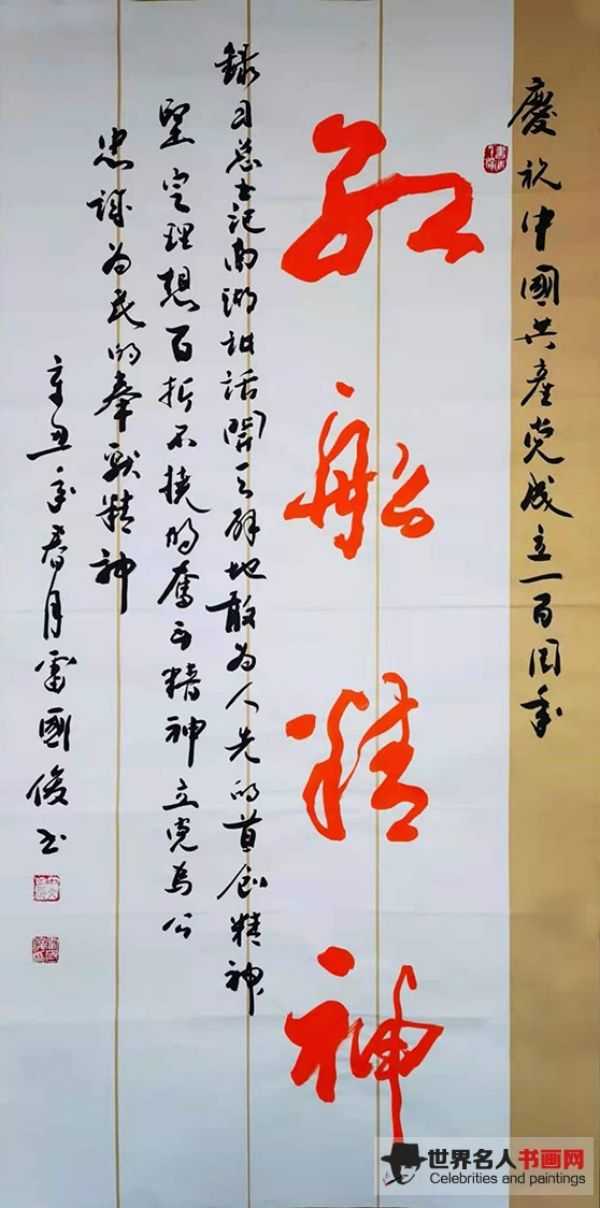 慶祝中國共產党成立一百周年
红船精神
録习总书记南湖讲话開天辟地敢为人先的首创精神
坚定理想百折不挠的奮斗精神立党為公
忠诚为民的奉献精神
辛丑年春月雷國俊书
世界名人书画网
Celebrities and paintings